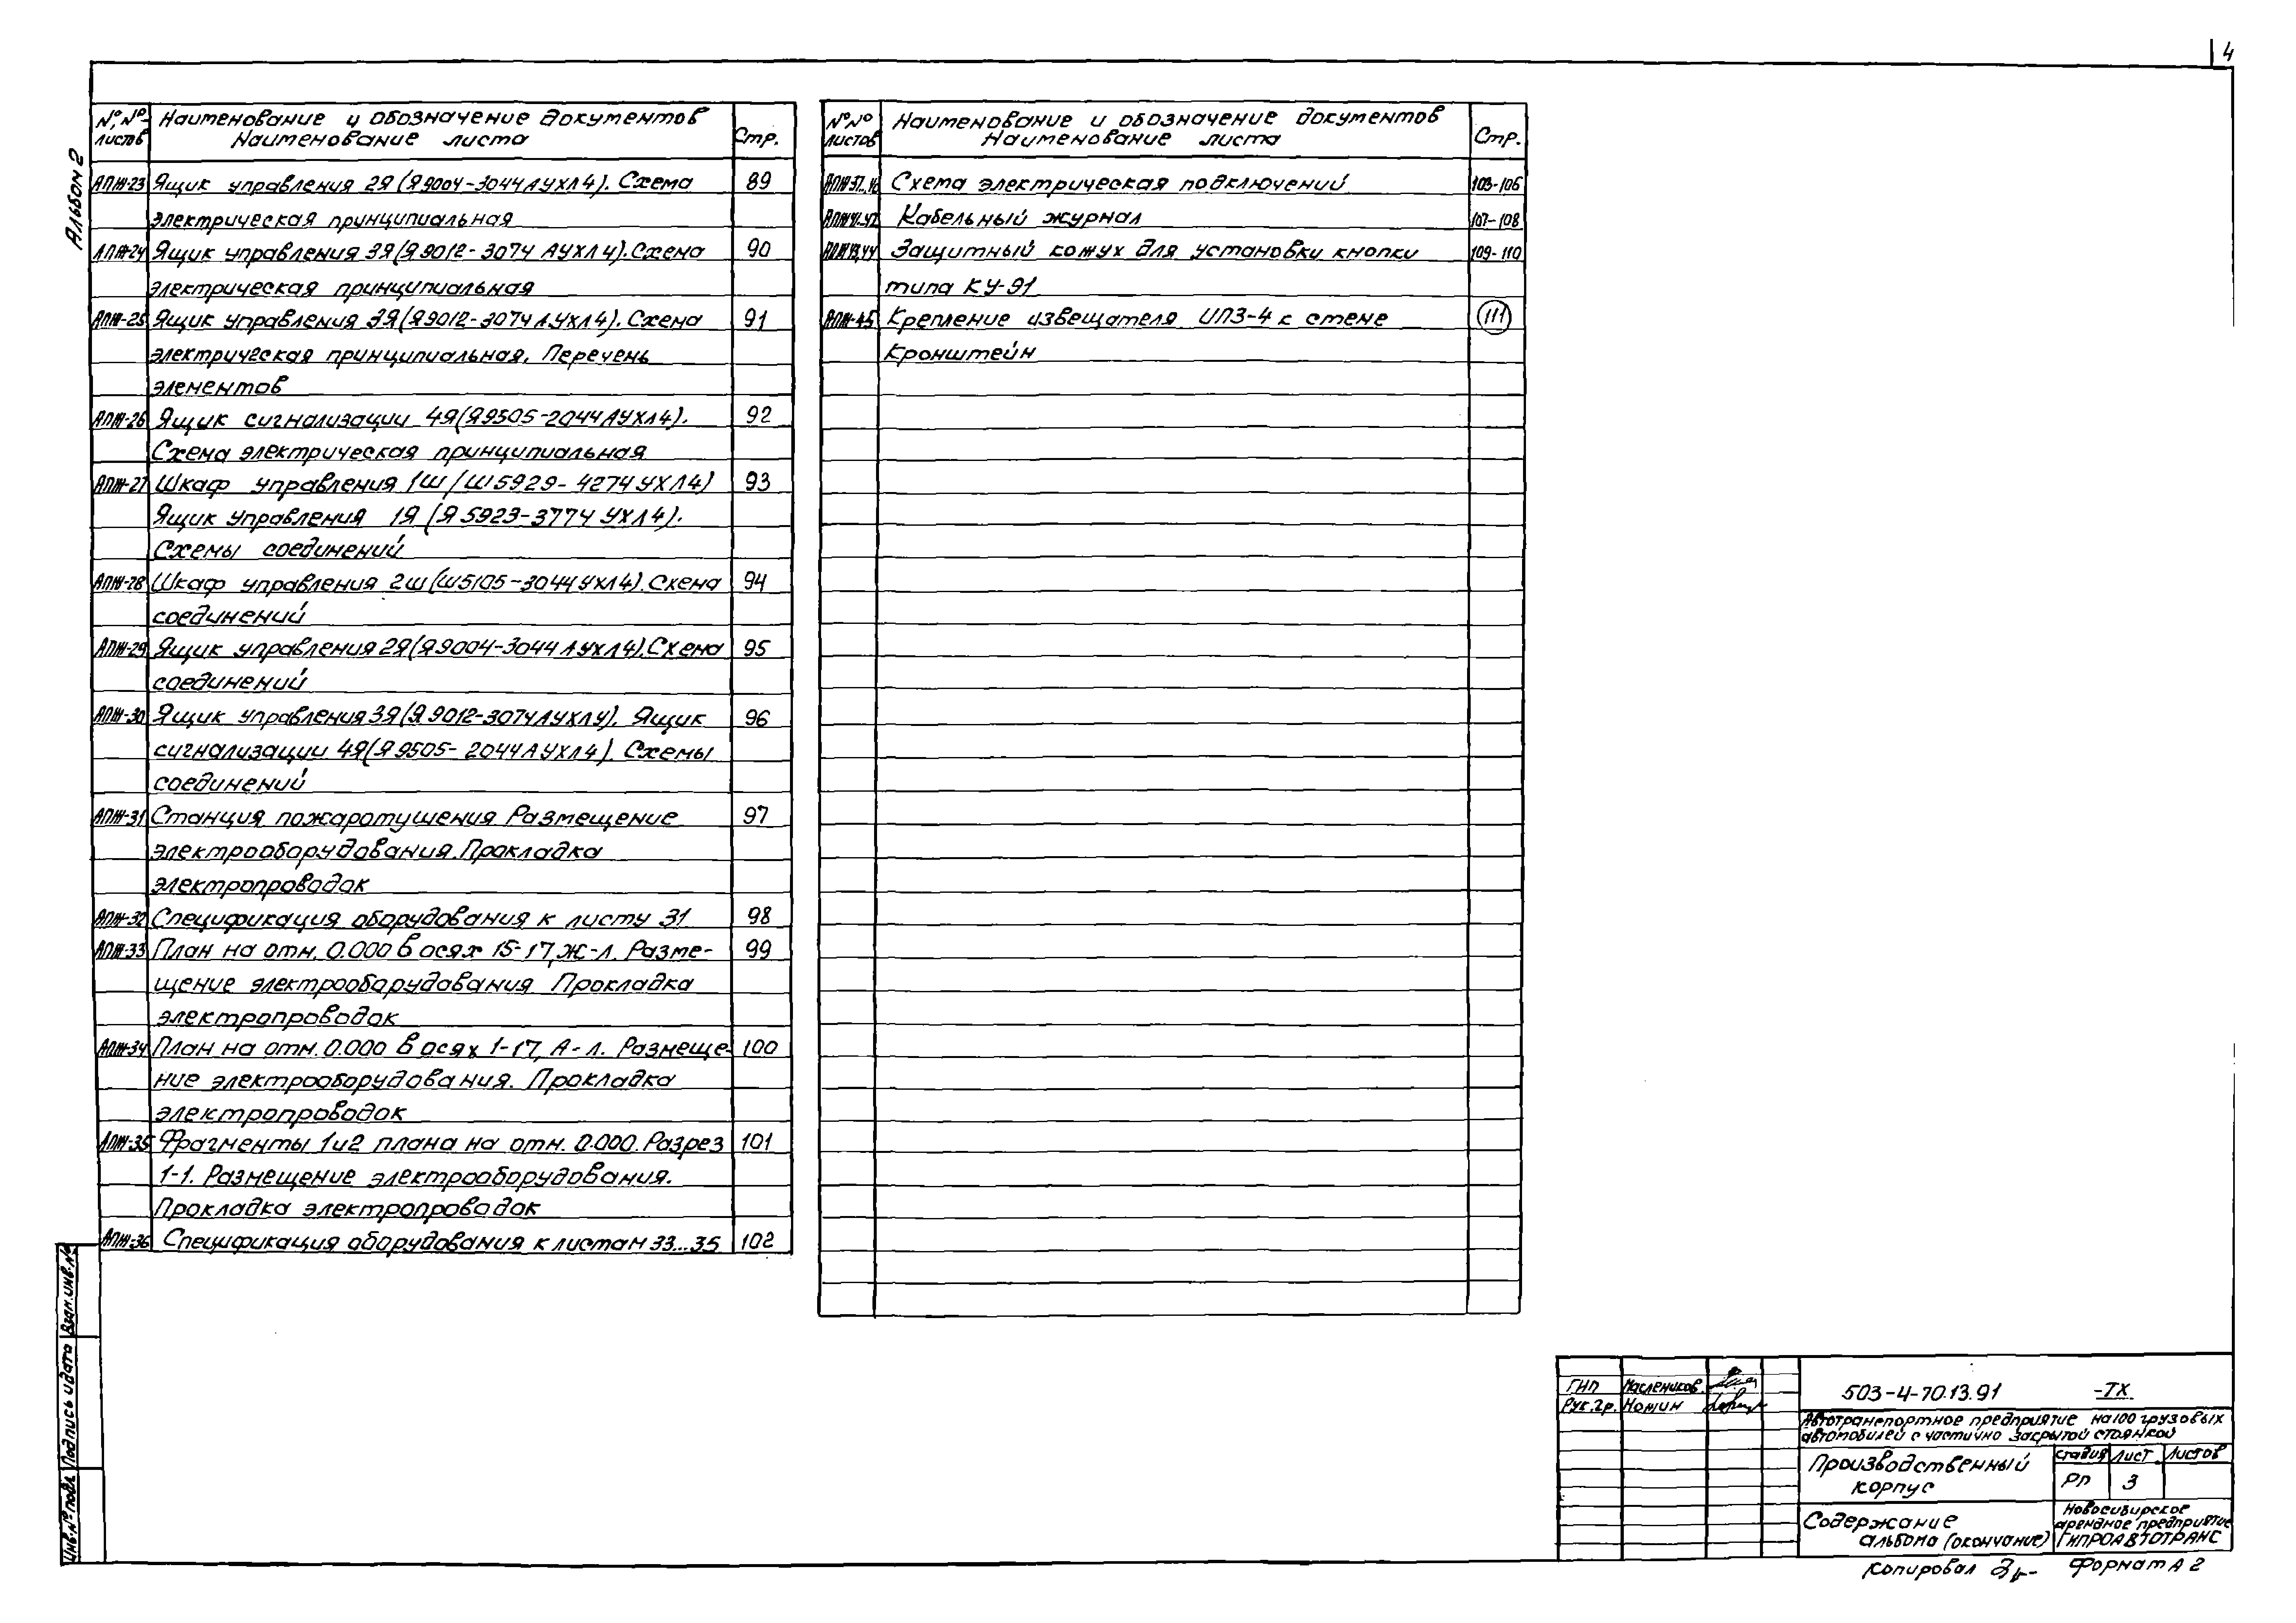 4
Альбом 2
№№ листов
Наименование и обозначение документов
Наименование листа
Стр.
АПЖ-23 Ящик управления 2Я (Я9004-3044АУХЛ4). Схема 89
электрическая принципиальная
АПЖ-24 Ящик управления 3Я (Я9012-3074 АУХЛ4). Схема 90
электрическая принципиальная
АПЖ-25 Ящик управления 3Я (Я9012-3074АУХЛ4). Схема 91
электрическая принципиальная. Перечень
элементов
АПЖ-26 Ящик сигнализации 4Я (Я9505-2044АУХЛ4). 92
Схема электрическая принципиальная
АПЖ-27 Шкаф управления 1Ш (Ш5929-4274УХЛ4) 93
Ящик управления 1Я (Я5923-3774 УХЛ4).
Схемы соединений
АПЖ-28 Шкаф управления 2Ш (Ш5105-3044УХЛ4). Схема 94
соединений
АПЖ-29 Ящик управления 2Я (Я9004-3044АУХЛ4). Схема 95
соединений
АПЖ-30 Ящик управления 3Я (Я9012-3074АУХЛ4). Ящик 96
сигнализации 4Я (Я9505-2044АУХЛ4). Схемы
соединений
АПЖ-31 Станция пожаротушения Размещение 97
электрооборудования. Прокладка
электропроводок
АПЖ-32 Спецификация оборудования к листу 31 98
АПЖ-33 План на отм. 0.000 в осях 15-17, Ж-Л. Разме- 99
щение электрооборудования Прокладка
электропроводок
АПЖ-34 План на отм. 0.000 в осях 1-17, А-Л. Размеще- 100
ние электрооборудования. Прокладка
электропроводок
АПЖ-35 Фрагменты 1 и 2 плана на отм. 0.000. Разрез 101
1-1. Размещение электрооборудования.
Прокладка электропроводок
АПЖ-36 Спецификация оборудования к листам 33...35 102
№№ листов
Наименование и обозначение документов
Наименование листа
Стр.
АПЖ-37..40 Схема электрическая подключений 103-106
АПЖ-41,42 Кабельный журнал 107-108
АПЖ-43,44 Защитный кожух для установки кнопки 109-110
типа КУ-91
АПЖ-45 Крепление извещателя ИПЗ-4 к стене 111
Кронштейн
Взам. инв. №
Подпись и дата
Инв. № подл.
ГИП Маслеников
Рук. гр. Номин
503-4-70.13.91 -ТХ
Автотранспортное предприятие на 100 грузовых
автомобилей с частично закрытой стоянкой
Производственный
корпус
Стадия Лист Листов
РП 3
Содержание
альбома (окончание)
Новосибирское
арендное предприятие
ГИПРОАВТОТРАНС
Копировал
Формат А2